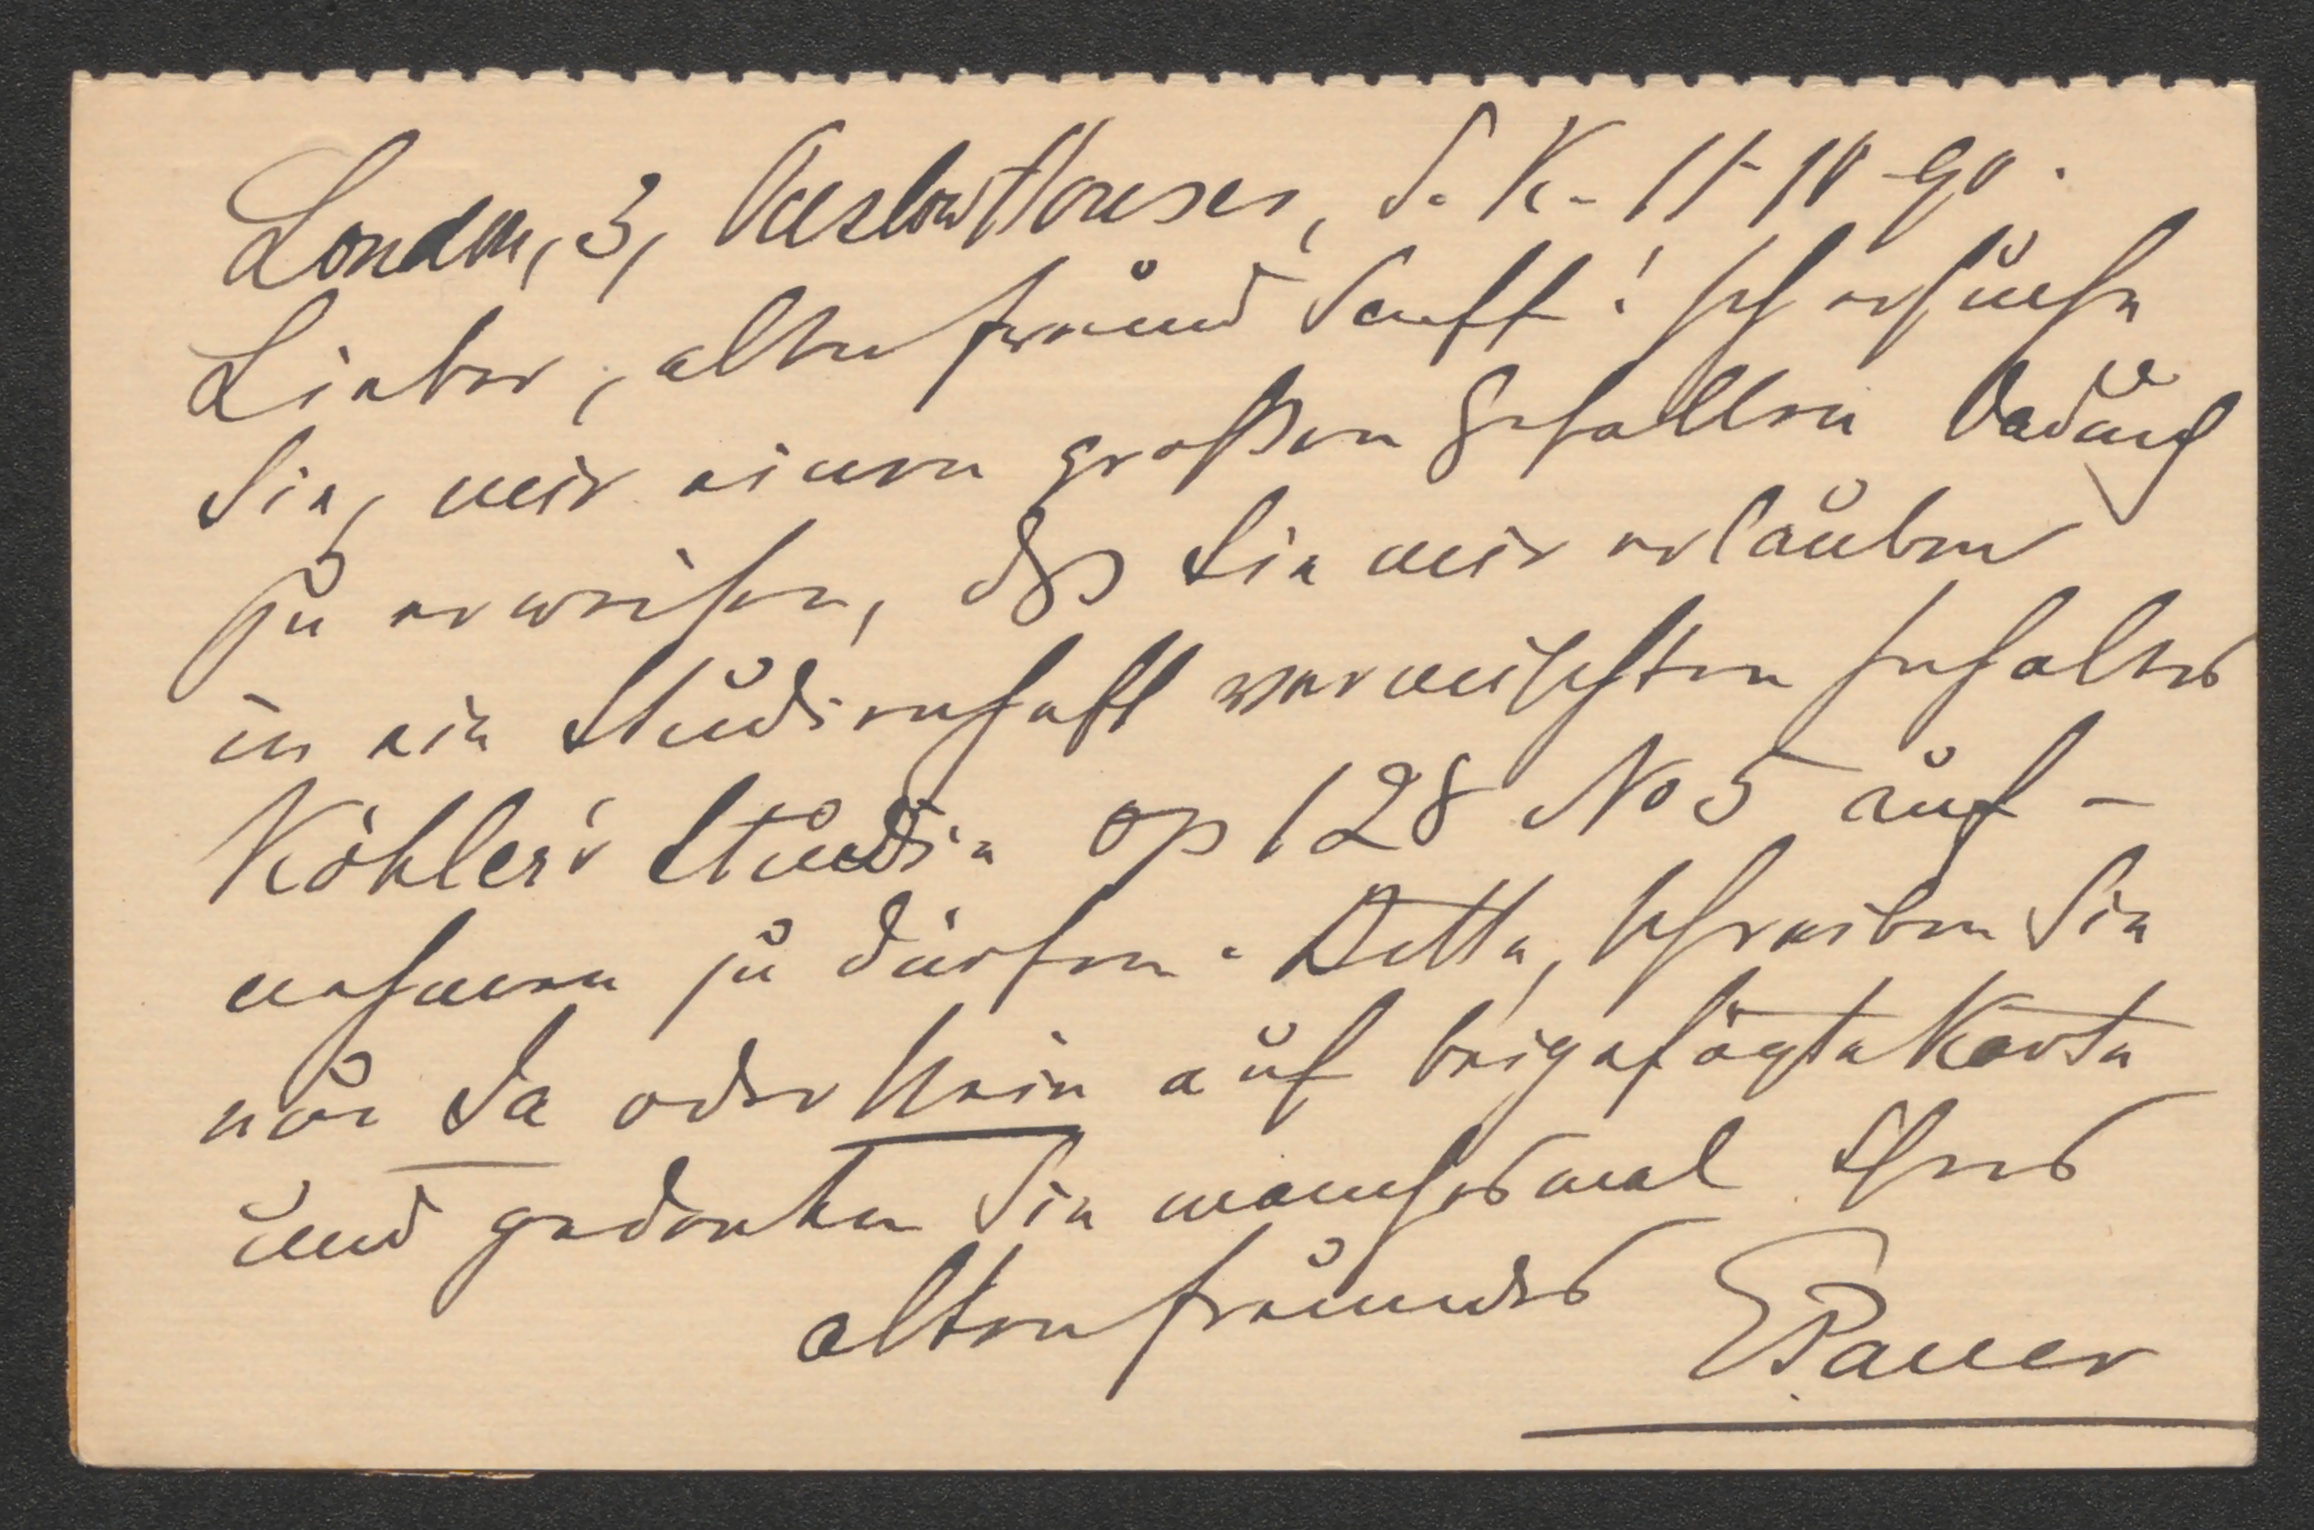 London, 3, Onslow Houses, S. K. 11-10-90.
Lieber, alter Freund Senff! Ich ersuche
Sie, mir einen großen Gefallen dadurch
zu erweisen, dß Sie mir erlauben
in ein Studienheft vermischten Inhaltes
Köhler's Studie op 128 No 5 auf-
nehmen zu dürfen. Bitte, schreiben Sie
nur Ja oder Nein auf beigefügte Karte
und gedenken Sie manchesmal Ihres
alten Freundes EPauer